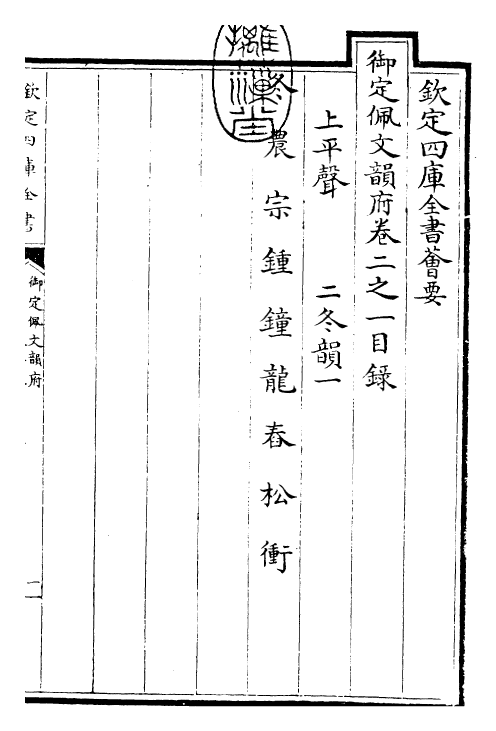 欽定四庫全書薈要
御定佩文韻府卷二之一目錄
上平聲 二冬韻一
冬 農 宗 鍾 鐘 龍 舂 松 衝
欽定四庫全書
御定佩文韻府
一